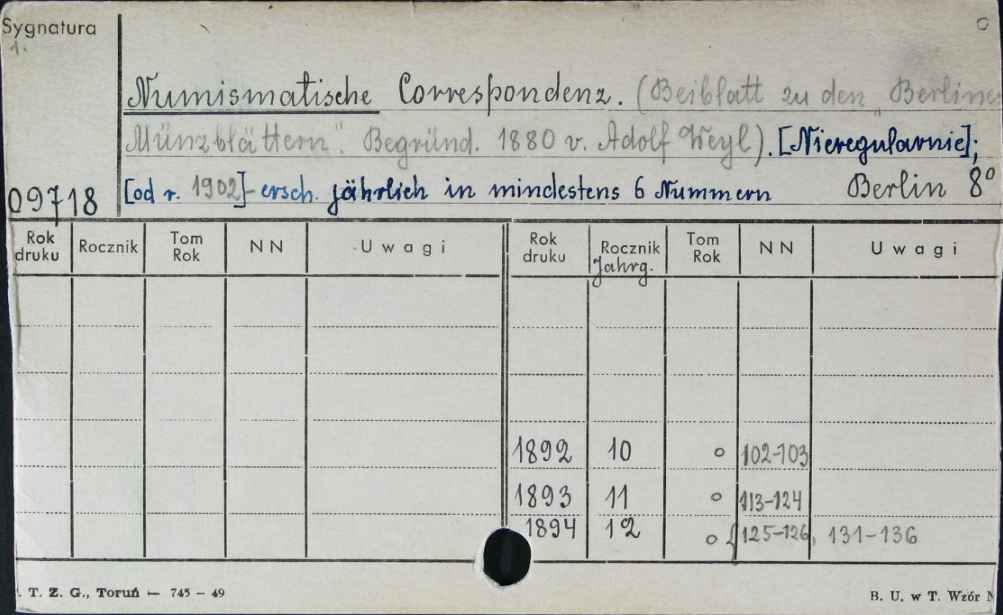 Sygnatura
1.
Numismatische Correspondenz. (Beiblatt zu den "Berliner
Münzblättern". Begründ. 1880 v. Adolf Weyl). [Nieregularnie];
09718 [od r. 1902]-ersch. jährlich in mindestens 6 Nummern Berlin 8°
Rok druku Rocznik Tom Rok NN Uwagi Rok druku Rocznik Jahrg. Tom Rok NN Uwagi
1892 10 o 102-103
1893 11 o 113-124
1894 12 o {125-126, 131-136
T. Z. G., Toruń — 745 – 49 B. U. w T. Wzór